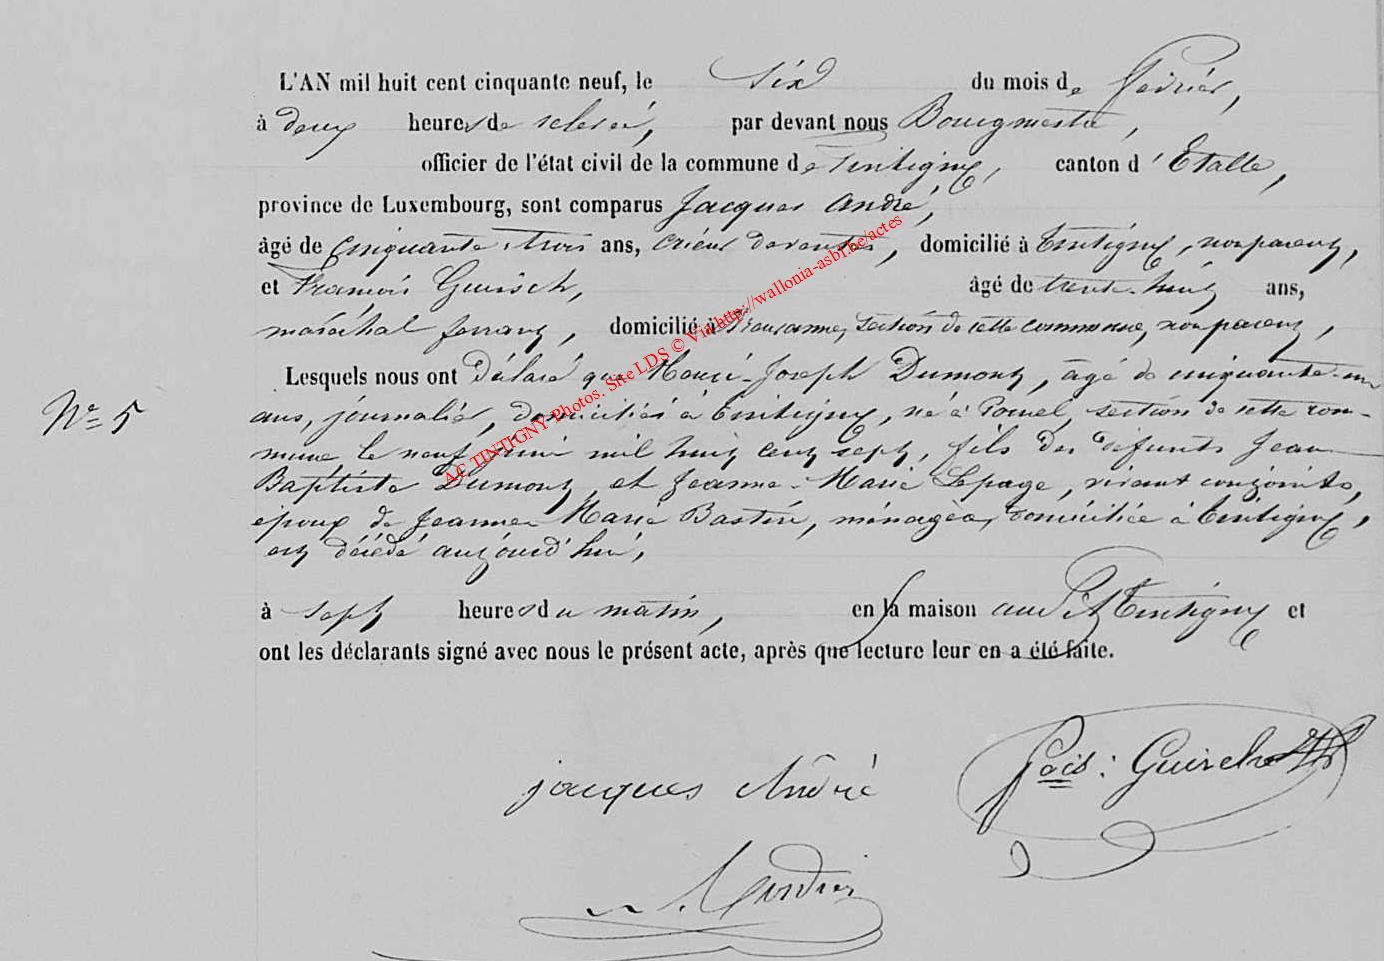 L'AN mil huit cent cinquante neuf, le six du mois de février,
à deux heures de relevée, par devant nous Bourgmestre,
officier de l'état civil de la commune de Tintigny, canton d'Etalle,
province de Luxembourg, sont comparus Jacques André,
âgé de cinquante-trois ans, crieur de ventes, domicilié à Tintigny, non parent,
et François Guirsch, âgé de trente-huit ans,
maréchal ferrant, domicilié à section de cette commune, non parent,
Lesquels nous ont déclaré que Henri-Joseph Dumont, âgé de cinquante-un
N° 5
ans, journalier, domicilié à Tintigny, né à Poncel, section de cette com-
mune le neuf juin mil huit cent sept, fils des défunts Jean
Baptiste Dumont et Jeanne-Marie Lepage, vivant conjoints,
époux de Jeanne Marie Bastin, ménagère, domiciliée à Tintigny,
est décédé aujourd'hui,
à sept heures du matin, en sa maison audit Tintigny et
ont les déclarants signé avec nous le présent acte, après que lecture leur en a été faite.
jacques André
fçois: Guirsch
AC TINTIGNY-Photos. Site LDS © Via http://wallonia-asbl.be/actes